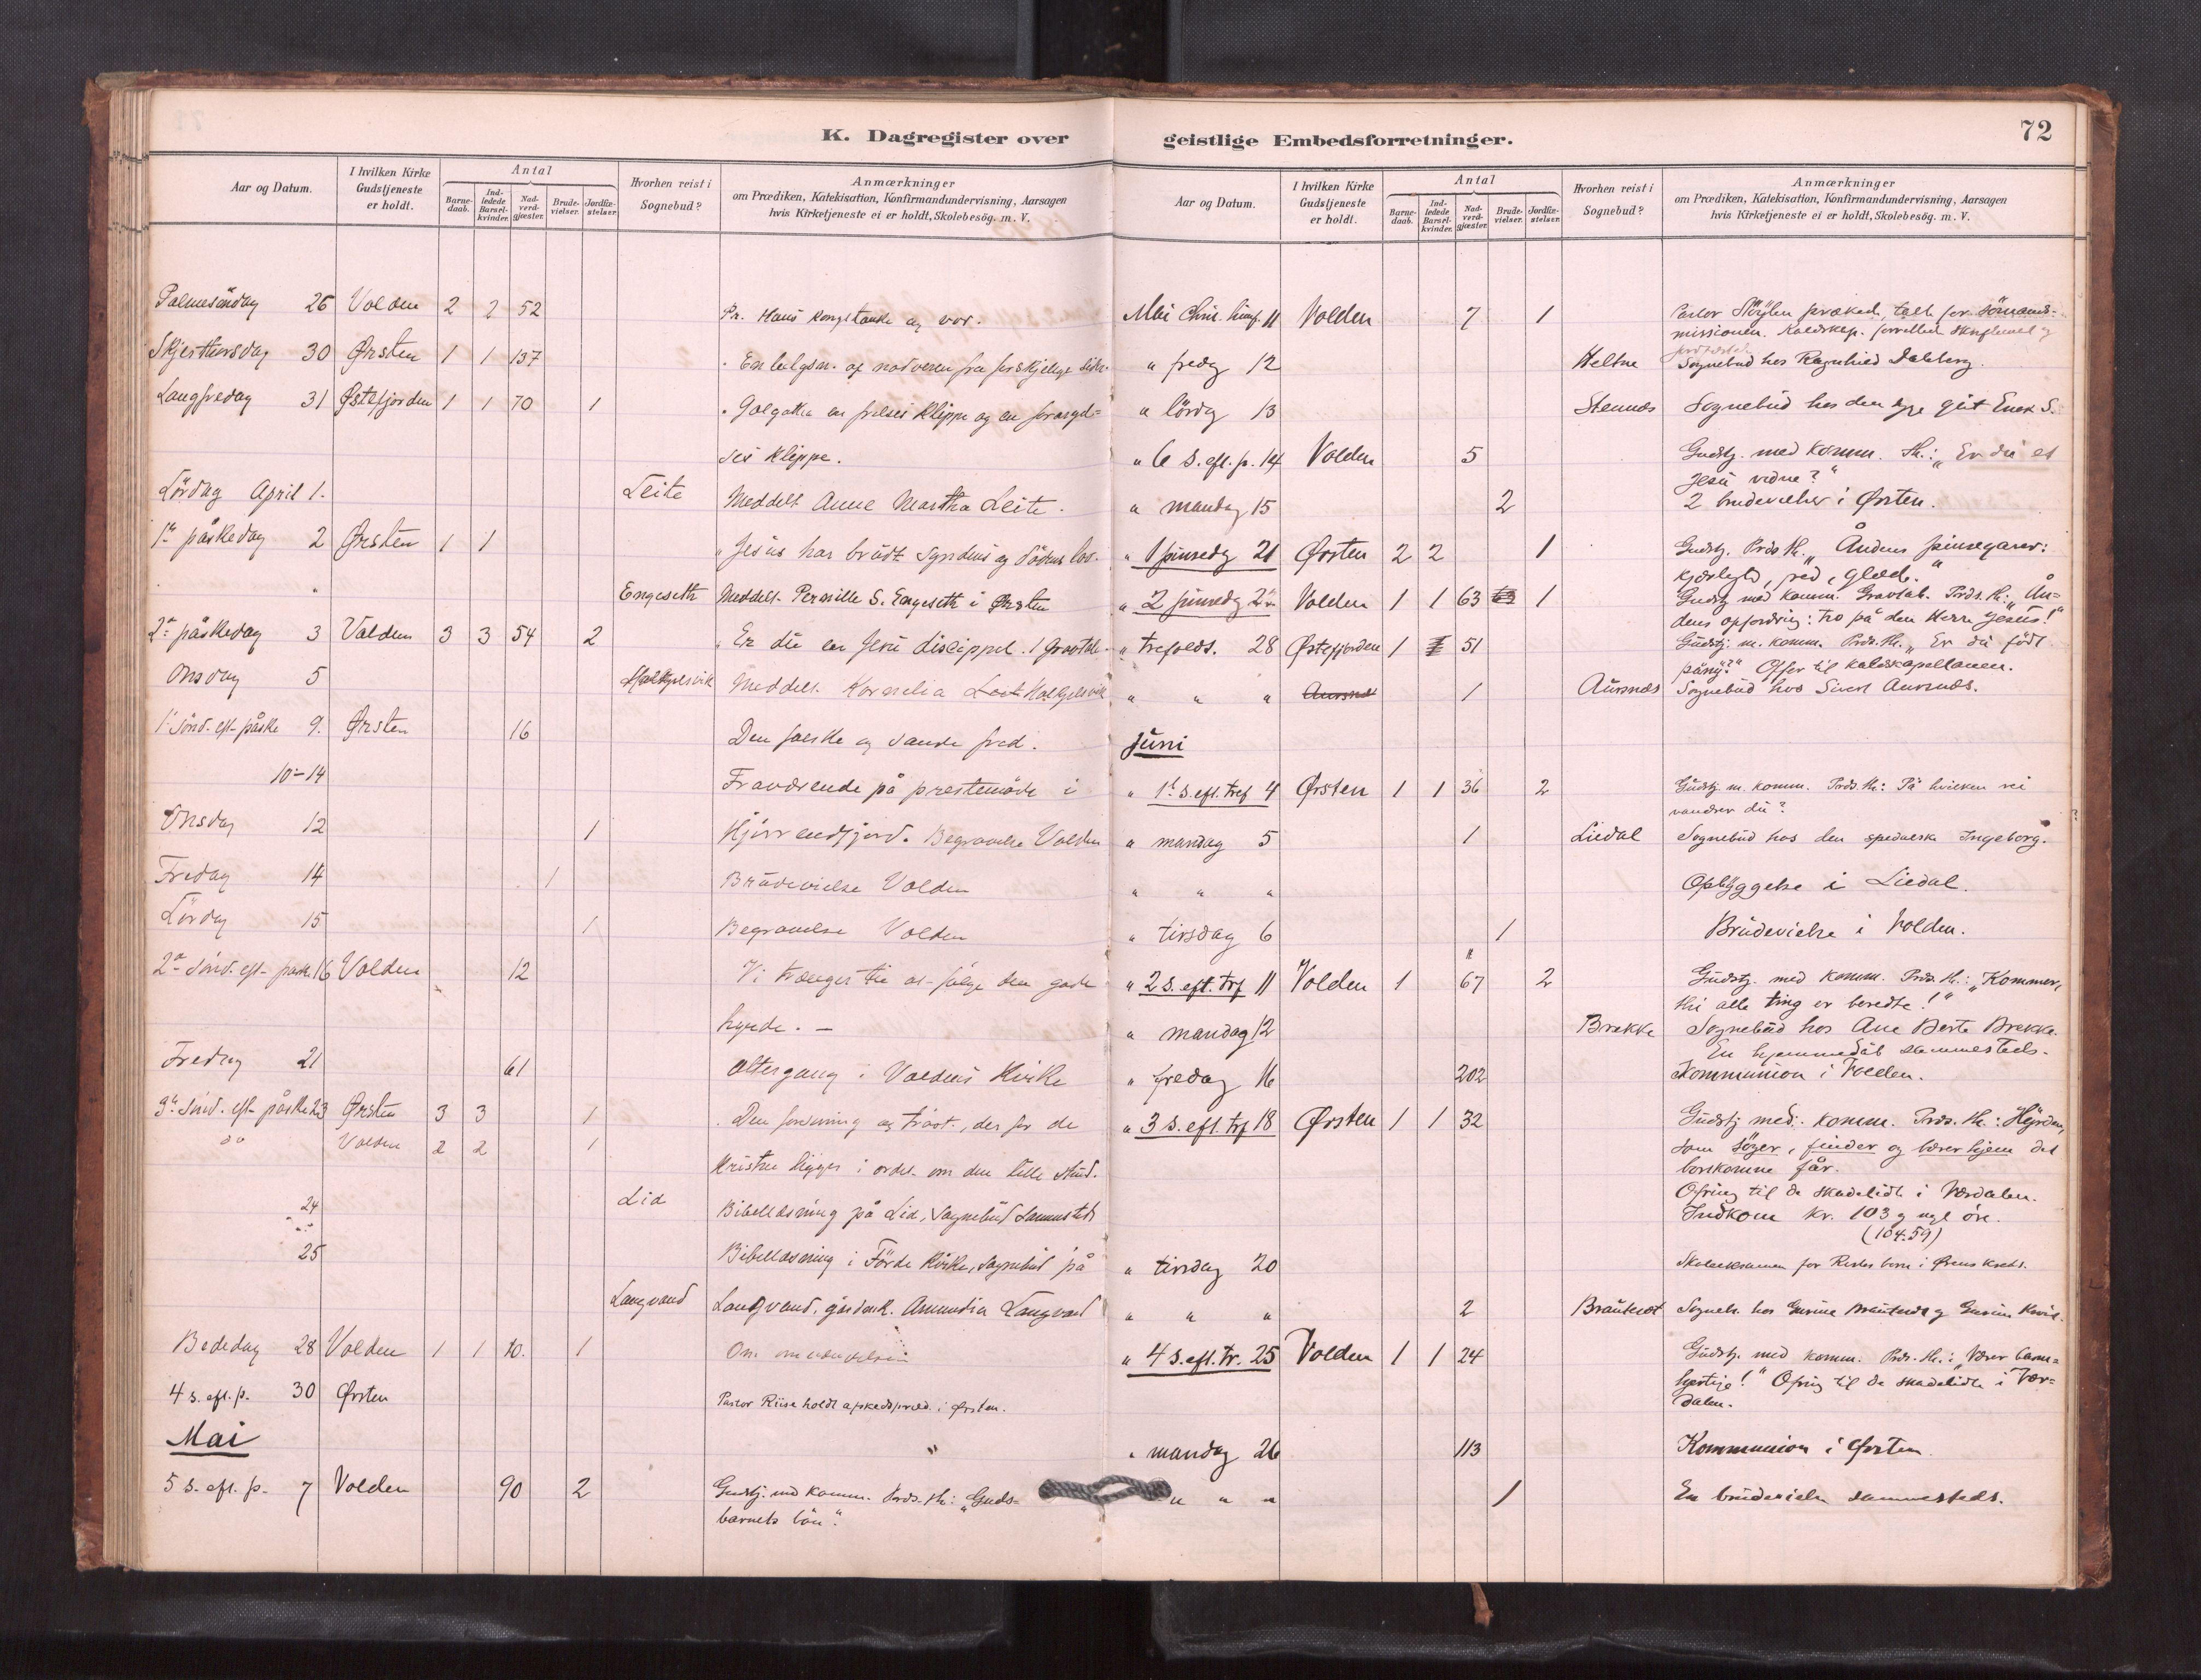 K. Dagregister over
Aar og Datum.
I hvilken Kirke Gudstjeneste er holdt.
Antal
Barnedaab.
Indledede Barselkvinder.
Nadverdgjæster.
Brudevielser.
Jordfæstelser.
Hvorhen reist i Sognebud?
Anmærkninger
om Prædiken, Katekisation, Konfirmandundervisning, Aarsagen
hvis Kirketjeneste ei er holdt, Skolebesög. m. V.
Palmesöndag 26 Volden 2 2 52 Pr. Hans kongetanke og vor.
Skjerthorsdag 30 Ørsten 1 1 137
Langfredag 31 Østefjorden 1 1 70 1 Golgatha en frelses Klippe og en
ses Klippe.
Lördag April 1. Leite Meddelt Anne Martha Leite.
1ste påskedag 2 Ørsten 1 1 Jesus har brudt Syndens og Dödens lov.
" Engeseth Meddelt Pernille S. Engeseth i Ørsten
2den påskedag 3 Volden 3 3 54 2 Er du en Jesu discippel. 1 Gravtale
Onsdag 5 Meddelt Kornelia
1ste Sönd. eft. påske 9. Ørsten 16 Den falske og sande fred.
10-14 Fraværende på prestemöde i
Onsdag 12 1 Hjörrendfjord. Begravelse Volden
Fredag 14 1 Brudevielse Volden
Lördag 15 1 Begravelse Volden
2den Sönd. eft. påsk. 16 Volden 12 Vi trænger til at fölge den gode
hyrde. -
Fredag 21 61 Altergang i Voldens Kirke
3die Sönd. eft. påske 23 Ørsten 3 3 1 Den formaning og tröst, der for de
do Volden 2 2 1
Kristne ligger i ordet om den lille stund.
24 Lid Bibellæsning på Lid, Sognebud sammesteds
25 Bibellæsning i Förde Kirke, Sognebud på
Langvand Langvand, gårdmk. Amundia Langvand
Bededag 28 Volden 1 1 10. 1 Om omvendelsen
4 s. eft. p. 30 Ørsten Pastor Riise holdt afskedspræd. i Ørsten.
Mai "
5 s. eft. p. 7 Volden 90 2 Gudstj. med komm. Præds. th.: "Guds-
barnets bön".
geistlige Embedsforretninger.
72
Aar og Datum.
I hvilken Kirke Gudstjeneste er holdt.
Antal
Barnedaab.
Indledede Barselkvinder.
Nadverdgjæster.
Brudevielser.
Jordfæstelser.
Hvorhen reist i Sognebud?
Anmærkninger
om Prædiken, Katekisation, Konfirmandundervisning, Aarsagen
hvis Kirketjeneste ei er holdt, Skolebesög. m. V.
Mai Chr. himf. 11 Volden 7 1 Pastor Störylen prækede, talte for sömands-
missionen. Kaldskap. forrettede skriftemål og
jordfæstelse
" fredag 12 Heltne Sognebud hos Ragnhild Dalsberg.
" lördag 13 Steinnes Sognebud hos den syge gut Enok S.
" 6 s. eft. p. 14 Volden 5 Gudstj. med komm. Th.: "Er du et
Jesu vidne?"
" mandag 15 2 2 brudevielser i Ørsten.
" 1 pinsedag 21 Ørsten 2 2 1 Gudstj. Præds th. "Åndens pinsegaver:
kjærlighed, fred, glæde."
" 2 pinsedag 22 Volden 1 1 63 63 1 Gudstj. med komm. Gravtale. Præds. th.: "Ån-
dens opfordring: tro på den Herre Jesus!"
" trefolds. 28 Østefjorden 1 1 51 Gudstj. m. komm. Præds. th. "Er du födt
påny?" Offer til kaldskapellanen.
" " " Aursnes 1 Aursnes Sognebud hos Sivert Aursnes.
Juni
" 1ste s. eft. tref 4 Ørsten 1 1 36 2 Gudstj. m. komm. Præds. th.: På hvilken vei
vandrer du?
" mandag 5 1 Liedal Sognebud hos den spedalske Ingeborg.
" " " Opbyggelse i Liedal.
" tirsdag 6 1 Brudevielse i Volden.
" 2 s. eft. trf 11 Volden 1 67 2 Gudstj. med komm. Præds. th.: "Kommer,
thi alle ting er beredte!"
" mandag 12 Brekke Sognebud hos Ane Berte Brekke.
En hjemmedåb sammesteds.
" fredag 16 202 Kommunion i Volden.
" 3 s. eft. trf 18 Ørsten 1 1 32 Gudstj. med komm. Præds. th.: Hyrden,
som söger, finder og bærer hjem det
bortkomne får.
Ofring til de skadelidte i Værdalen.
Indkom kr. 103 og
(104.59)
" tirsdag 20 Skoleeksamen for
" " " 2 Brauteset
" 4 s. eft. tr. 25 Volden 1 1 24 Gudstj. med komm. Præds. th.: "Vær barm-
hjertige!" Ofring til de skadelidte i Vær-
dalen.
" mandag 26 113 Kommunion i Ørsten.
" " " 1 En brudevielse sammesteds.